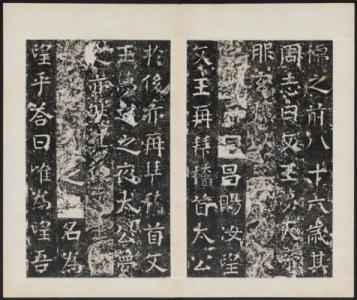 儒之前八十六歲其
周志曰文王夢天帝
服玄
曰昌賜汝望
文王再拜稽首太公
於後亦再拜稽首文
王夢之之夜太公夢
之亦然其後文王
之名為
望乎答曰唯為望吾